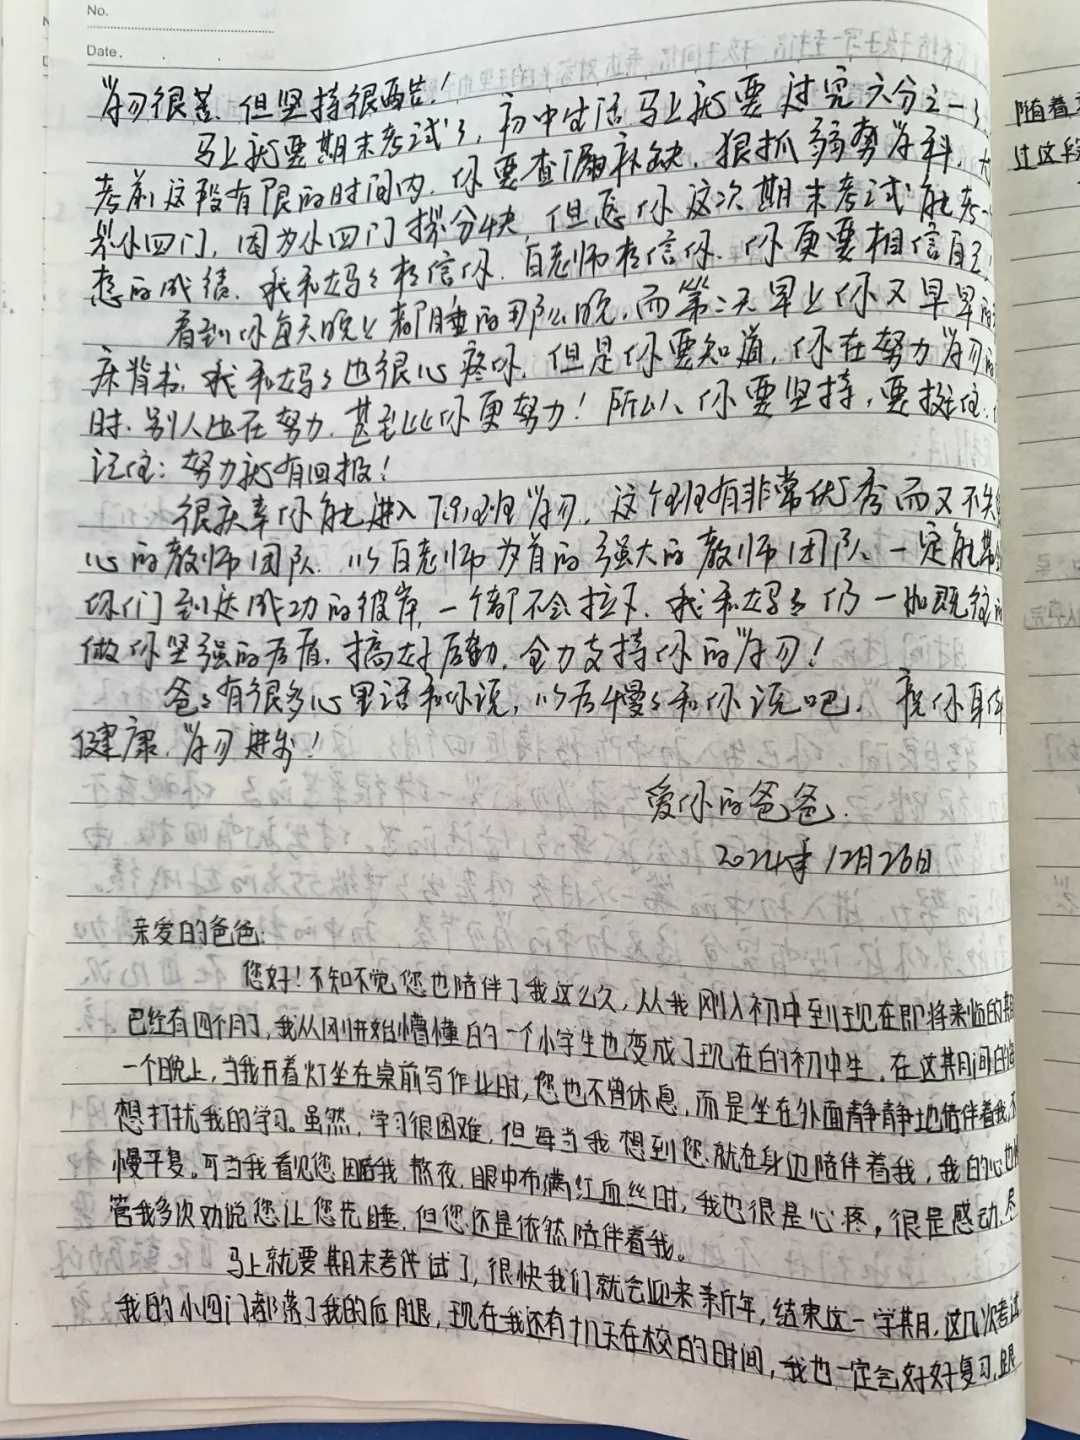 No.
Date.
学习很苦，但坚持很酷！
马上就要期末考试了，初中生活马上就要过完六分之一了，
考前这段有限的时间内，你要查漏补缺，狠抓弱势学科，
小四门，因为小四门拨分快，但愿你这次期末考试能考
想的成绩，我和妈妈相信你，白老师相信你，你更要相信自己
看到你每天晚上都睡的那么晚，而第二天早上你又早早的
床背书，我和妈妈也很心疼你，但是你要知道，你在努力学习的
时，别人也在努力，甚至比你更努力！所以，你要坚持，要挺住，
记住：努力就有回报！
很庆幸你能进入7.9班学习，这个班有非常优秀而又不失
心的教师团队，以白老师为首的强大的教师团队，一定能带
你们到达成功的彼岸，一个都不会拉下，我和妈妈仍一如既往的
做你坚强的后盾，搞好后勤，全力支持你的学习！
爸爸有很多心里话和你说，以后慢慢和你说吧，祝你身体
健康，学习进步！
爱你的爸爸
2024年12月26日
亲爱的爸爸：
您好！不知不觉您也陪伴了我这么久，从我刚入初中到现在即将来临的期
已经有四个月了，我从刚开始懵懂的一个小学生也变成了现在的初中生，在这期间的
一个晚上，当我开着灯坐在桌前写作业时，您也不曾休息，而是坐在外面静静地陪伴着我，不
想打扰我的学习。虽然，学习很困难，但每当我想到您就在身边陪伴着我，我的心也
慢平复。可当我看见您因陪我熬夜，眼中布满红血丝时，我也很是心疼，很是感动，尽
管我多次劝说您让您先睡，但您还是依然陪伴着我。
马上就要期末考试了，很快我们就会迎来新年，结束这一学期，这几次考试
我的小四门都落了我的后腿，现在我还有十几天在校的时间，我也一定会好好复习，跟
随着
过这段